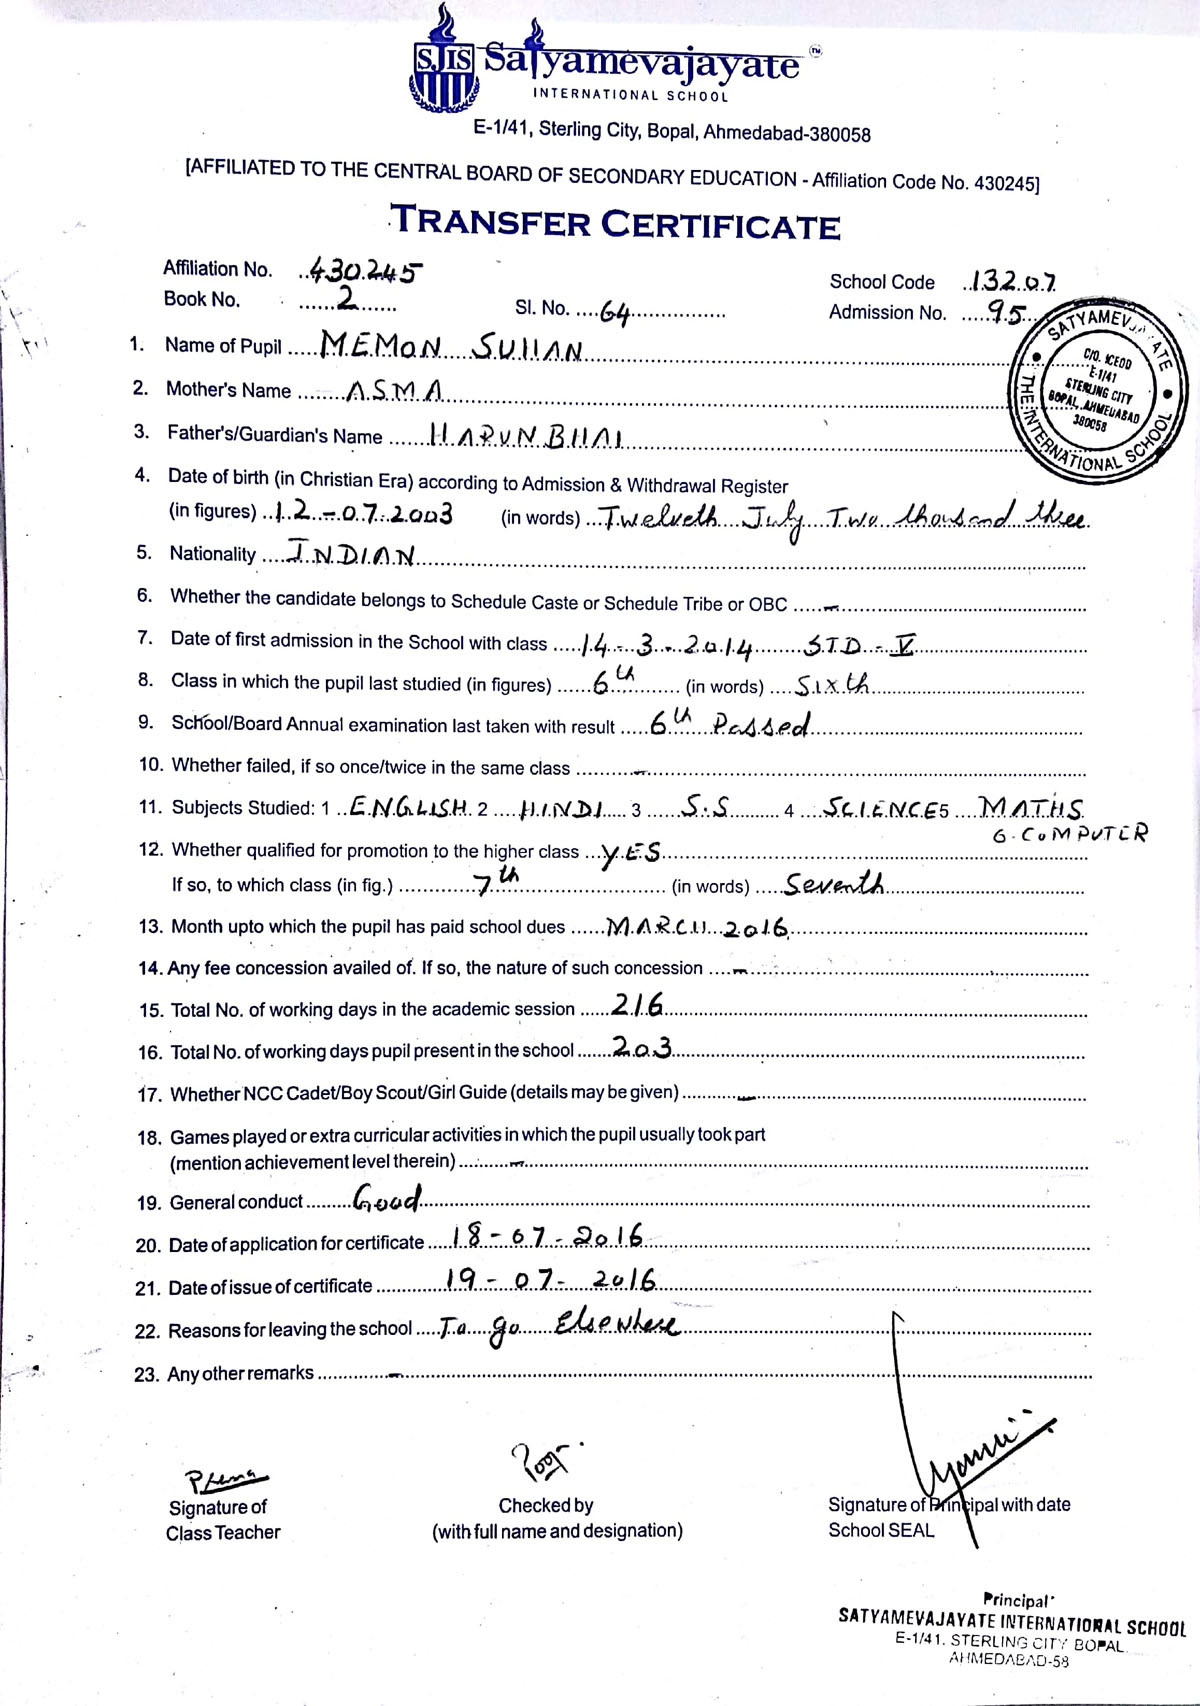 SJIS Satyamevajayate TM
INTERNATIONAL SCHOOL
E-1/41, Sterling City, Bopal, Ahmedabad-380058
[AFFILIATED TO THE CENTRAL BOARD OF SECONDARY EDUCATION - Affiliation Code No. 430245]
TRANSFER CERTIFICATE
Affiliation No. 430245 School Code 13207
Book No. 2 Sl. No. 64 Admission No. 95
SATYAMEVAJAYATE
THE INTERNATIONAL SCHOOL
C/O. ICEOD
E-1/41
STERLING CITY
BOPAL, AHMEDABAD
380058
1. Name of Pupil MEMON SUHAN
2. Mother's Name ASMA
3. Father's/Guardian's Name HARUNBHAI
4. Date of birth (in Christian Era) according to Admission & Withdrawal Register
(in figures) 12-07-2003 (in words) Twelveth July Two thousand three
5. Nationality INDIAN
6. Whether the candidate belongs to Schedule Caste or Schedule Tribe or OBC -
7. Date of first admission in the School with class 14-3-2014 STD-V
8. Class in which the pupil last studied (in figures) 6th (in words) Sixth
9. School/Board Annual examination last taken with result 6th Passed
10. Whether failed, if so once/twice in the same class -
11. Subjects Studied: 1 ENGLISH 2 HINDI 3 S.S 4 SCIENCE 5 MATHS
6. COMPUTER
12. Whether qualified for promotion to the higher class YES
If so, to which class (in fig.) 7th (in words) Seventh
13. Month upto which the pupil has paid school dues MARCH 2016
14. Any fee concession availed of. If so, the nature of such concession -
15. Total No. of working days in the academic session 216
16. Total No. of working days pupil present in the school 203
17. Whether NCC Cadet/Boy Scout/Girl Guide (details may be given) -
18. Games played or extra curricular activities in which the pupil usually took part
(mention achievement level therein) -
19. General conduct Good
20. Date of application for certificate 18-07-2016
21. Date of issue of certificate 19-07-2016
22. Reasons for leaving the school To go Elsewhere
23. Any other remarks -
Signature of Checked by Signature of Principal with date
Class Teacher (with full name and designation) School SEAL
Principal
SATYAMEVAJAYATE INTERNATIONAL SCHOOL
E-1/41. STERLING CITY BOPAL.
AHMEDABAD-58